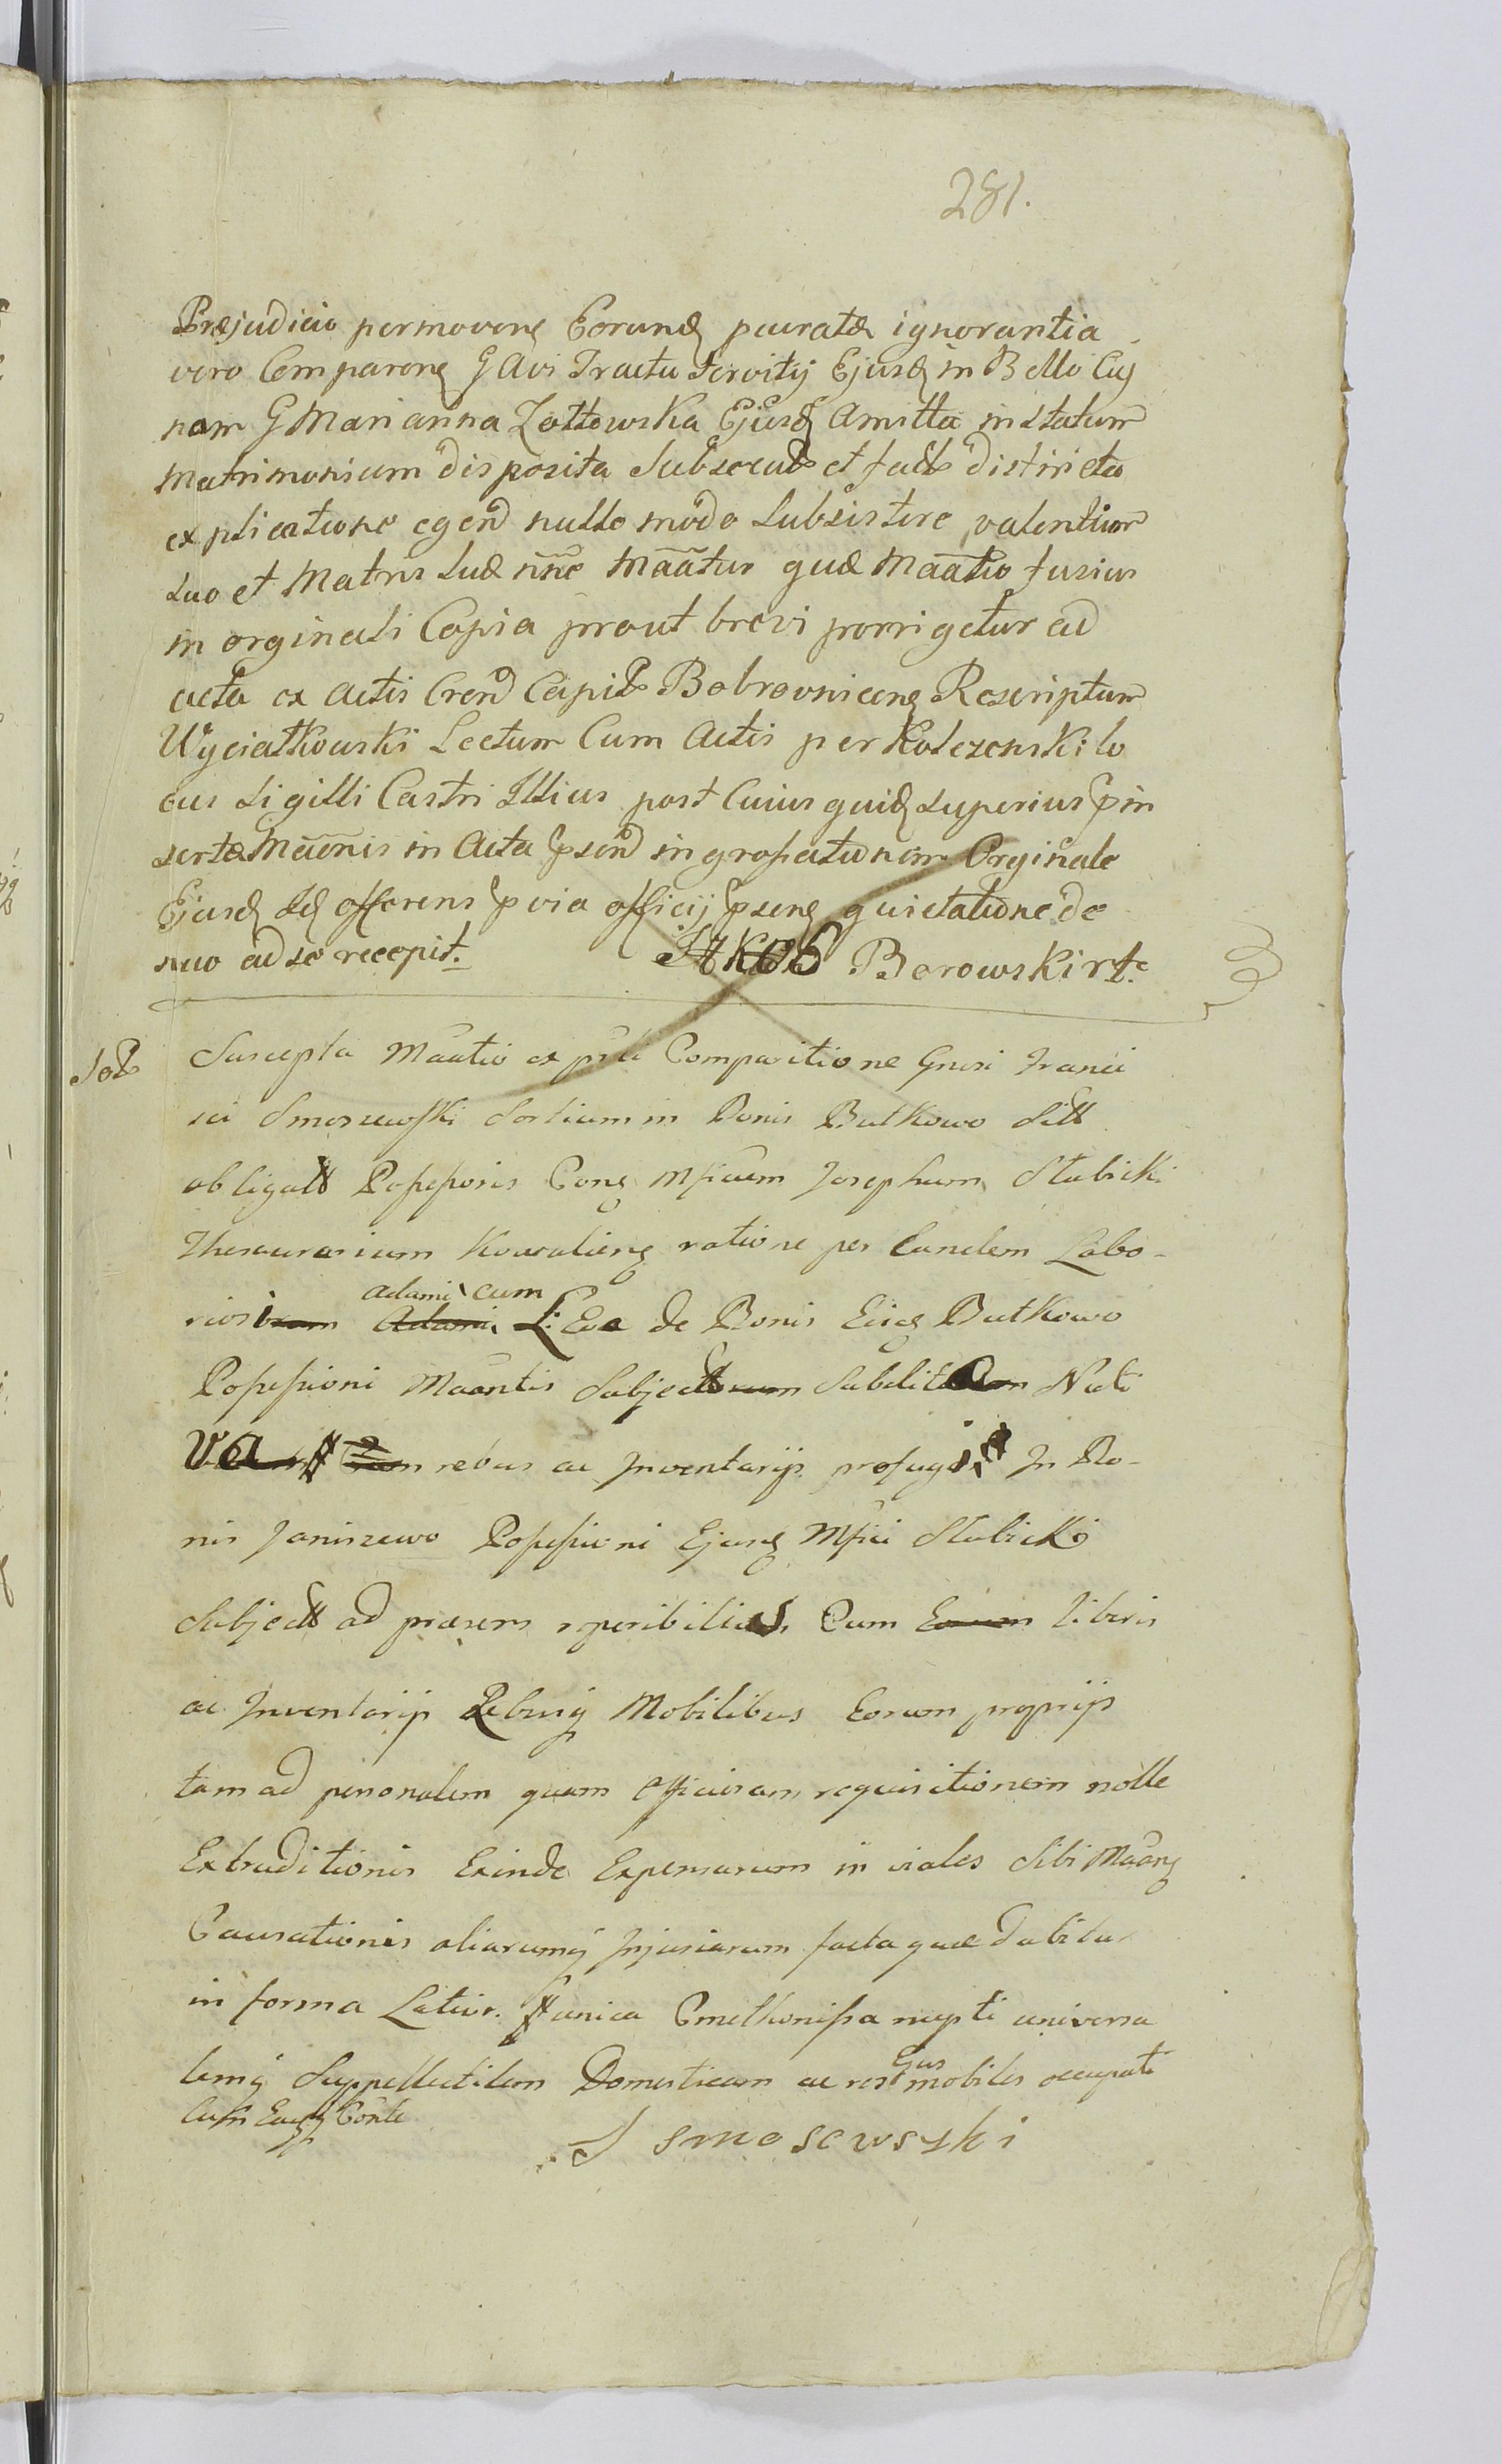 281.
Præjudicio permovens Eorund paratæ ignorantia
vero Comparens G Avi Tractu Servitij Ejusd in Bello Cuj
nam G Marianna Zottowska Ejusd Amitta in Statum
Matrimonium disposita Subsecut et fact districta
explicatione egend nullo modo Subsistere valentium
Suo et Matris Suæ nñe Mããtur quæ Maãtio fusius
in orginali Copia prout brevi porrigetur ad
acta ex actis Crend Capit Bobrovnicens Rescriptum
Wyciatkowski Lectum Cum Actis per Kolczenski lo
cus Sigilli Castri Illius post Cuius quid Superius in
sertæ Mãõnis in Acta psend ingrossationem Orginale
Ejusd Sd offerens pvia officij psens quietatione de
nuo ad se recepit.
Jakob Borowski rt.
Suscepta Maatio ex Comparitione Gnrsi Franci
sci Smoszewski Sortium in Bonis Butkowo Sitt
obligatt Possessoris Cons Mficum Josephum Stubicki
Thesaurarium Kowaliens ratione per Eundem Labo-
Adami cum
rios Adami L: Eva de Bonis Butkowo
Possessioni Maantis Subject Subdit Nati
va rebus ac Inventarijs profugi In Bo-
nis Janiszewo Possessioni Ejusd Mfici Stubicki
Subjectt ad præsens reperibilius Cum Eorum liberis
ac Inventarijs Rebusq Mobilibus Eorum proprijs
tam ad personalem quam officiosam requisitionem nolle
Extraditionis Exinde Expensarum in viales Sibi Maans
Causationis aliarumq Injuriarum facta quæ dabitur
in forma Latior. unica Cmethonissa nupti universa
Ejus
lemq Suppellectilem Domesticam ac res mobiles occupati
Cum Conte
Smosewski